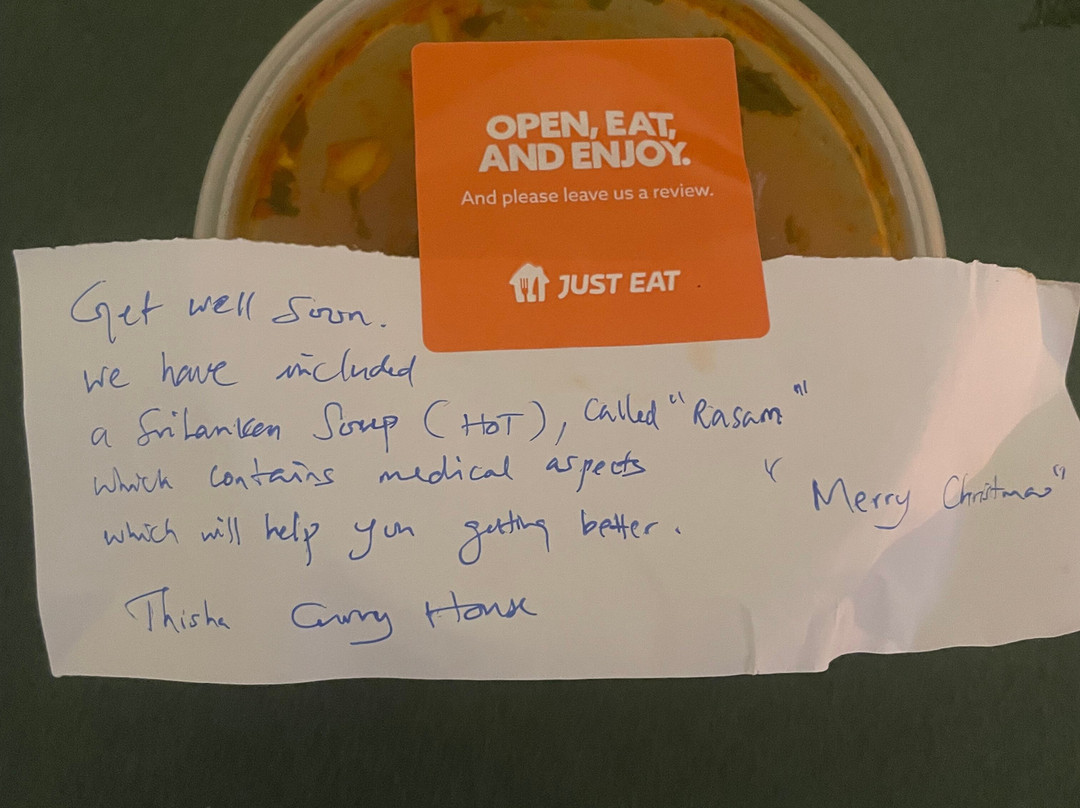 OPEN, EAT,
AND ENJOY.
And please leave us a review.
JUST EAT
Get well Soon.
we have included
a SriLanken Soup (HOT), called "Rasam"
which contains medical aspects
which will help you getting better.
"Merry Christmas"
Thisha Curry House